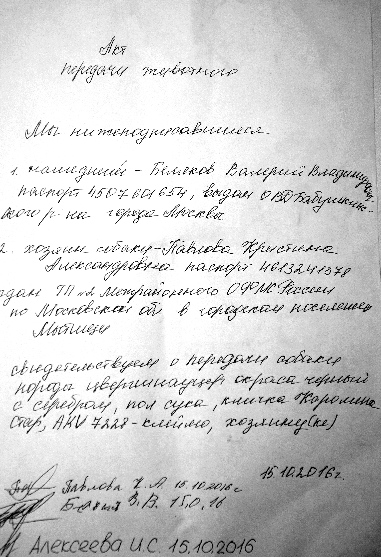 Акт
передачи животного
Мы нижеподписавшиеся.
1. нашедший - Беляков Валерий Владимирович
паспорт 4507601654, выдан ОВД Бабушкин-
ского р-на города Москва
2. хозяин собаки-Павлова Кристина
Александровна паспорт
выдан ТП №2 Межрайонного ОУФМС России
по Московской обл в городском поселении
Мытищи
свидетельствуем о передачи собаки
порода цвергшнауцер окраса черный
с серебром, пол сука, кличка Каролина
Стар, AKV 7228-клеймо, хозяину(ке)
15.10.2016г.
Павлова К.А 15.10.2016г
В.В. 15.0.16
Алексеева И.С. 15.10.2016